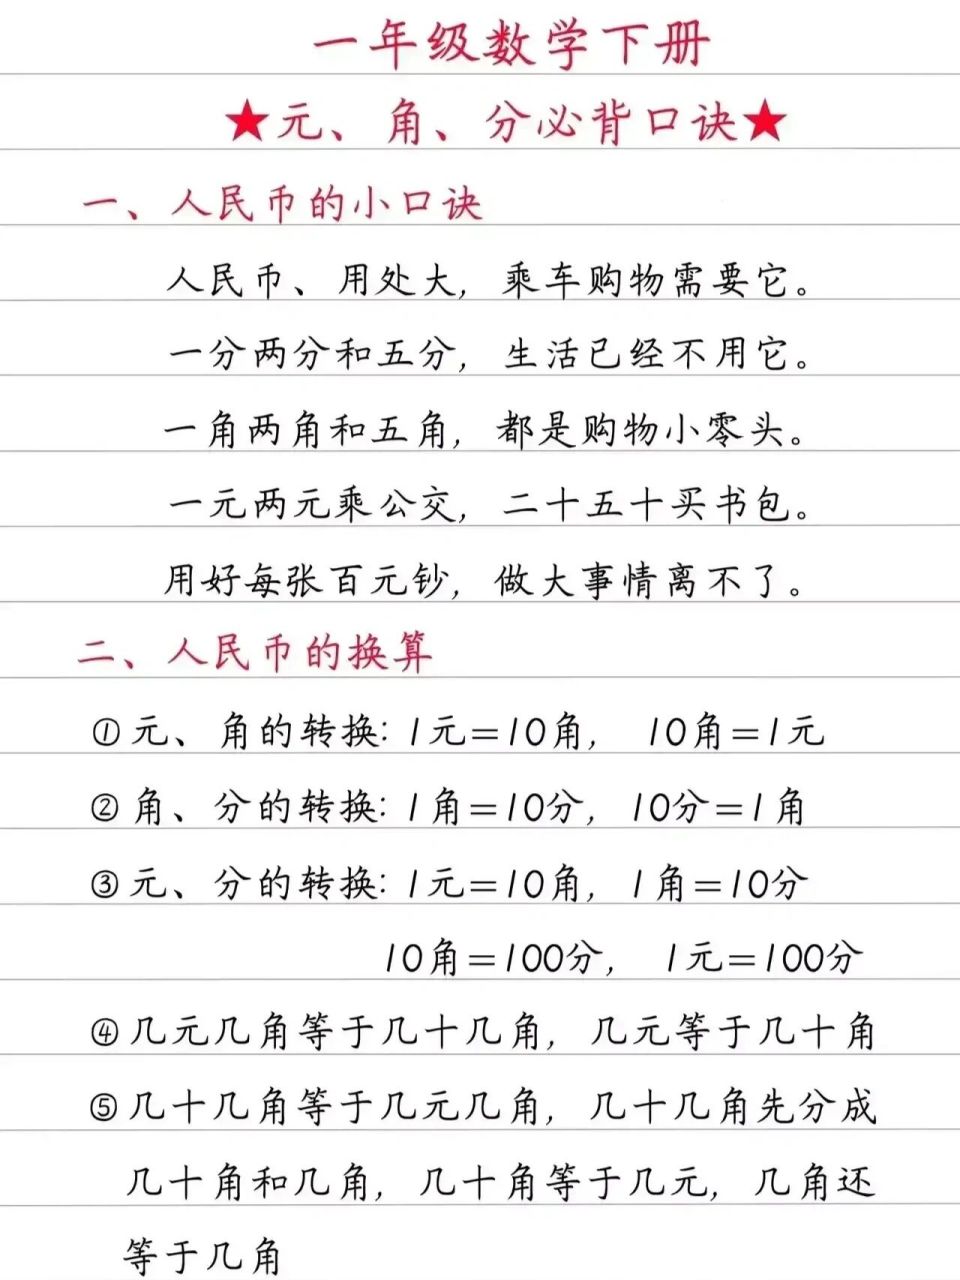 一年级数学下册
★元、角、分必背口诀★
一、人民币的小口诀
人民币、用处大，乘车购物需要它。
一分两分和五分，生活已经不用它。
一角两角和五角，都是购物小零头。
一元两元乘公交，二十五十买书包。
用好每张百元钞，做大事情离不了。
二、人民币的换算
①元、角的转换：1元=10角，10角=1元
②角、分的转换：1角=10分，10分=1角
③元、分的转换：1元=10角，1角=10分
10角=100分，1元=100分
④几元几角等于几十几角，几元等于几十角
⑤几十几角等于几元几角，几十几角先分成
几十角和几角，几十角等于几元，几角还
等于几角